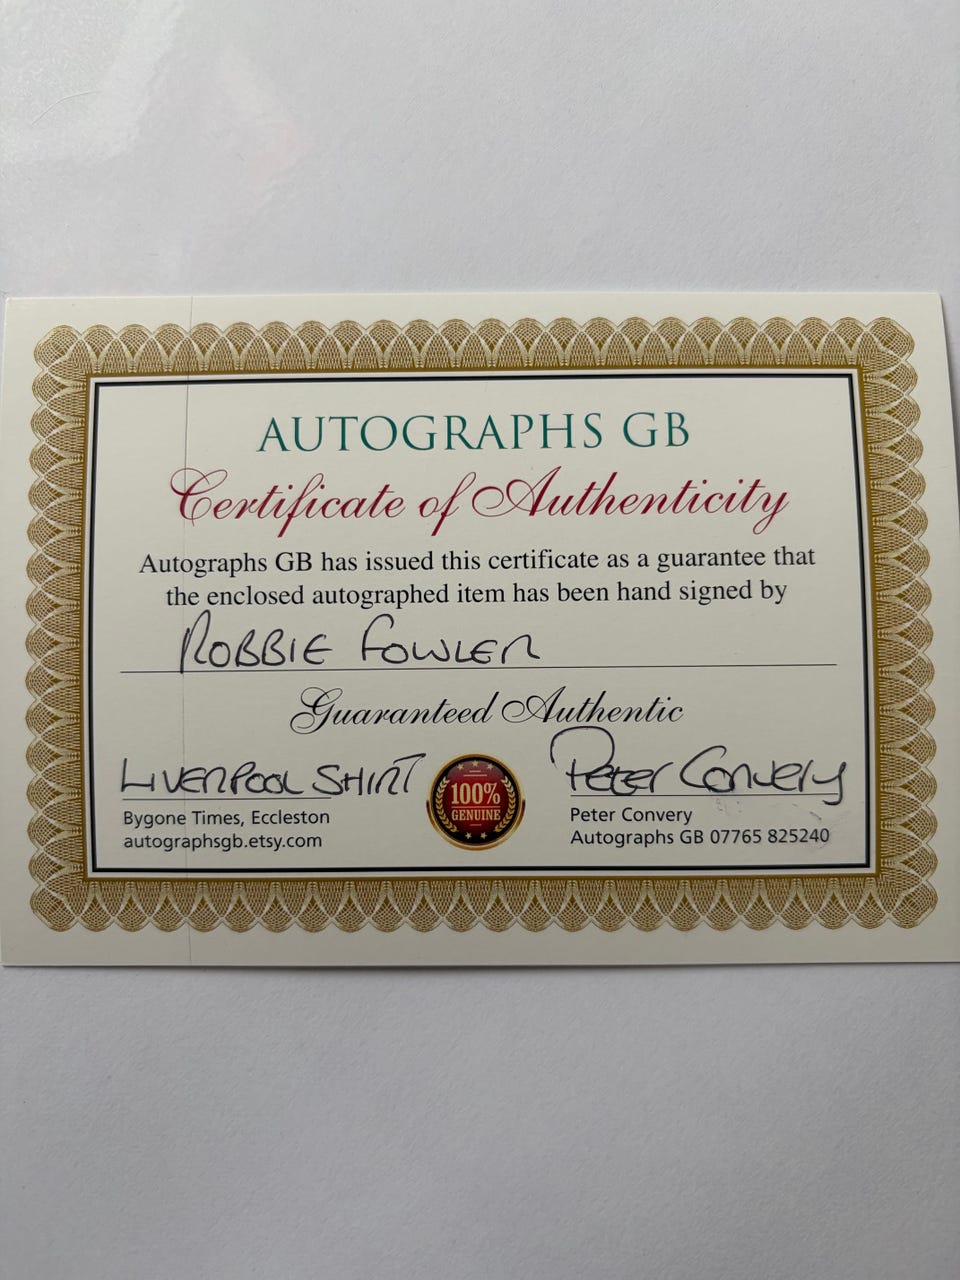 AUTOGRAPHS GB
Certificate of Authenticity
Autographs GB has issued this certificate as a guarantee that
the enclosed autographed item has been hand signed by
ROBBIE FOWLER
Guaranteed Authentic
LIVERPOOL SHIRT
Bygone Times, Eccleston
autographsgb.etsy.com
100%
GENUINE
Peter Convery
Peter Convery
Autographs GB 07765 825240